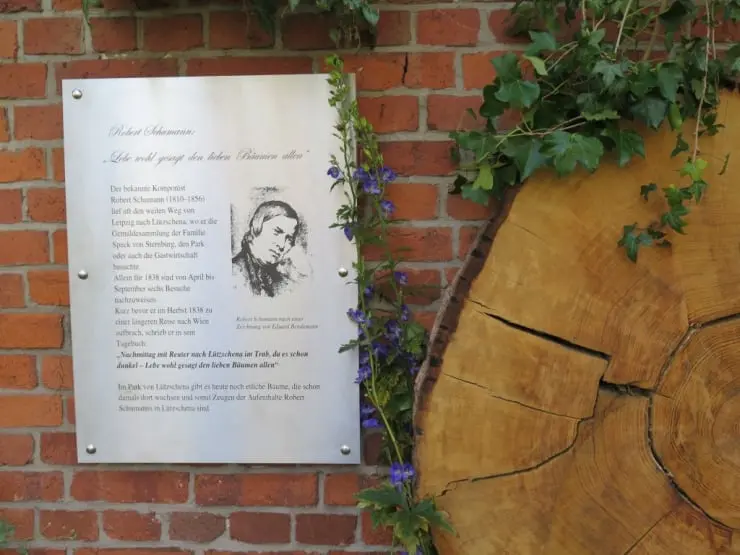 Robert Schumann:
„Lebe wohl gesagt den lieben Bäumen allen“
Der bekannte Komponist
Robert Schumann (1810–1856)
lief oft den weiten Weg von
Leipzig nach Lützschena, wo er die
Gemäldesammlung der Familie
Speck von Sternburg, den Park
oder auch die Gastwirtschaft
besuchte.
Allein für 1838 sind von April bis
September sechs Besuche
nachzuweisen.
Kurz bevor er im Herbst 1838 zu
einer längeren Reise nach Wien
aufbrach, schrieb er in sein
Tagebuch:
„Nachmittag mit Reuter nach Lützschena im Trab, da es schon
dunkel – Lebe wohl gesagt den lieben Bäumen allen“
Im Park von Lützschena gibt es heute noch etliche Bäume, die schon
damals dort wuchsen und somit Zeugen der Aufenthalte Robert
Schumanns in Lützschena sind.
Robert Schumann nach einer
Zeichnung von Eduard Bendemann